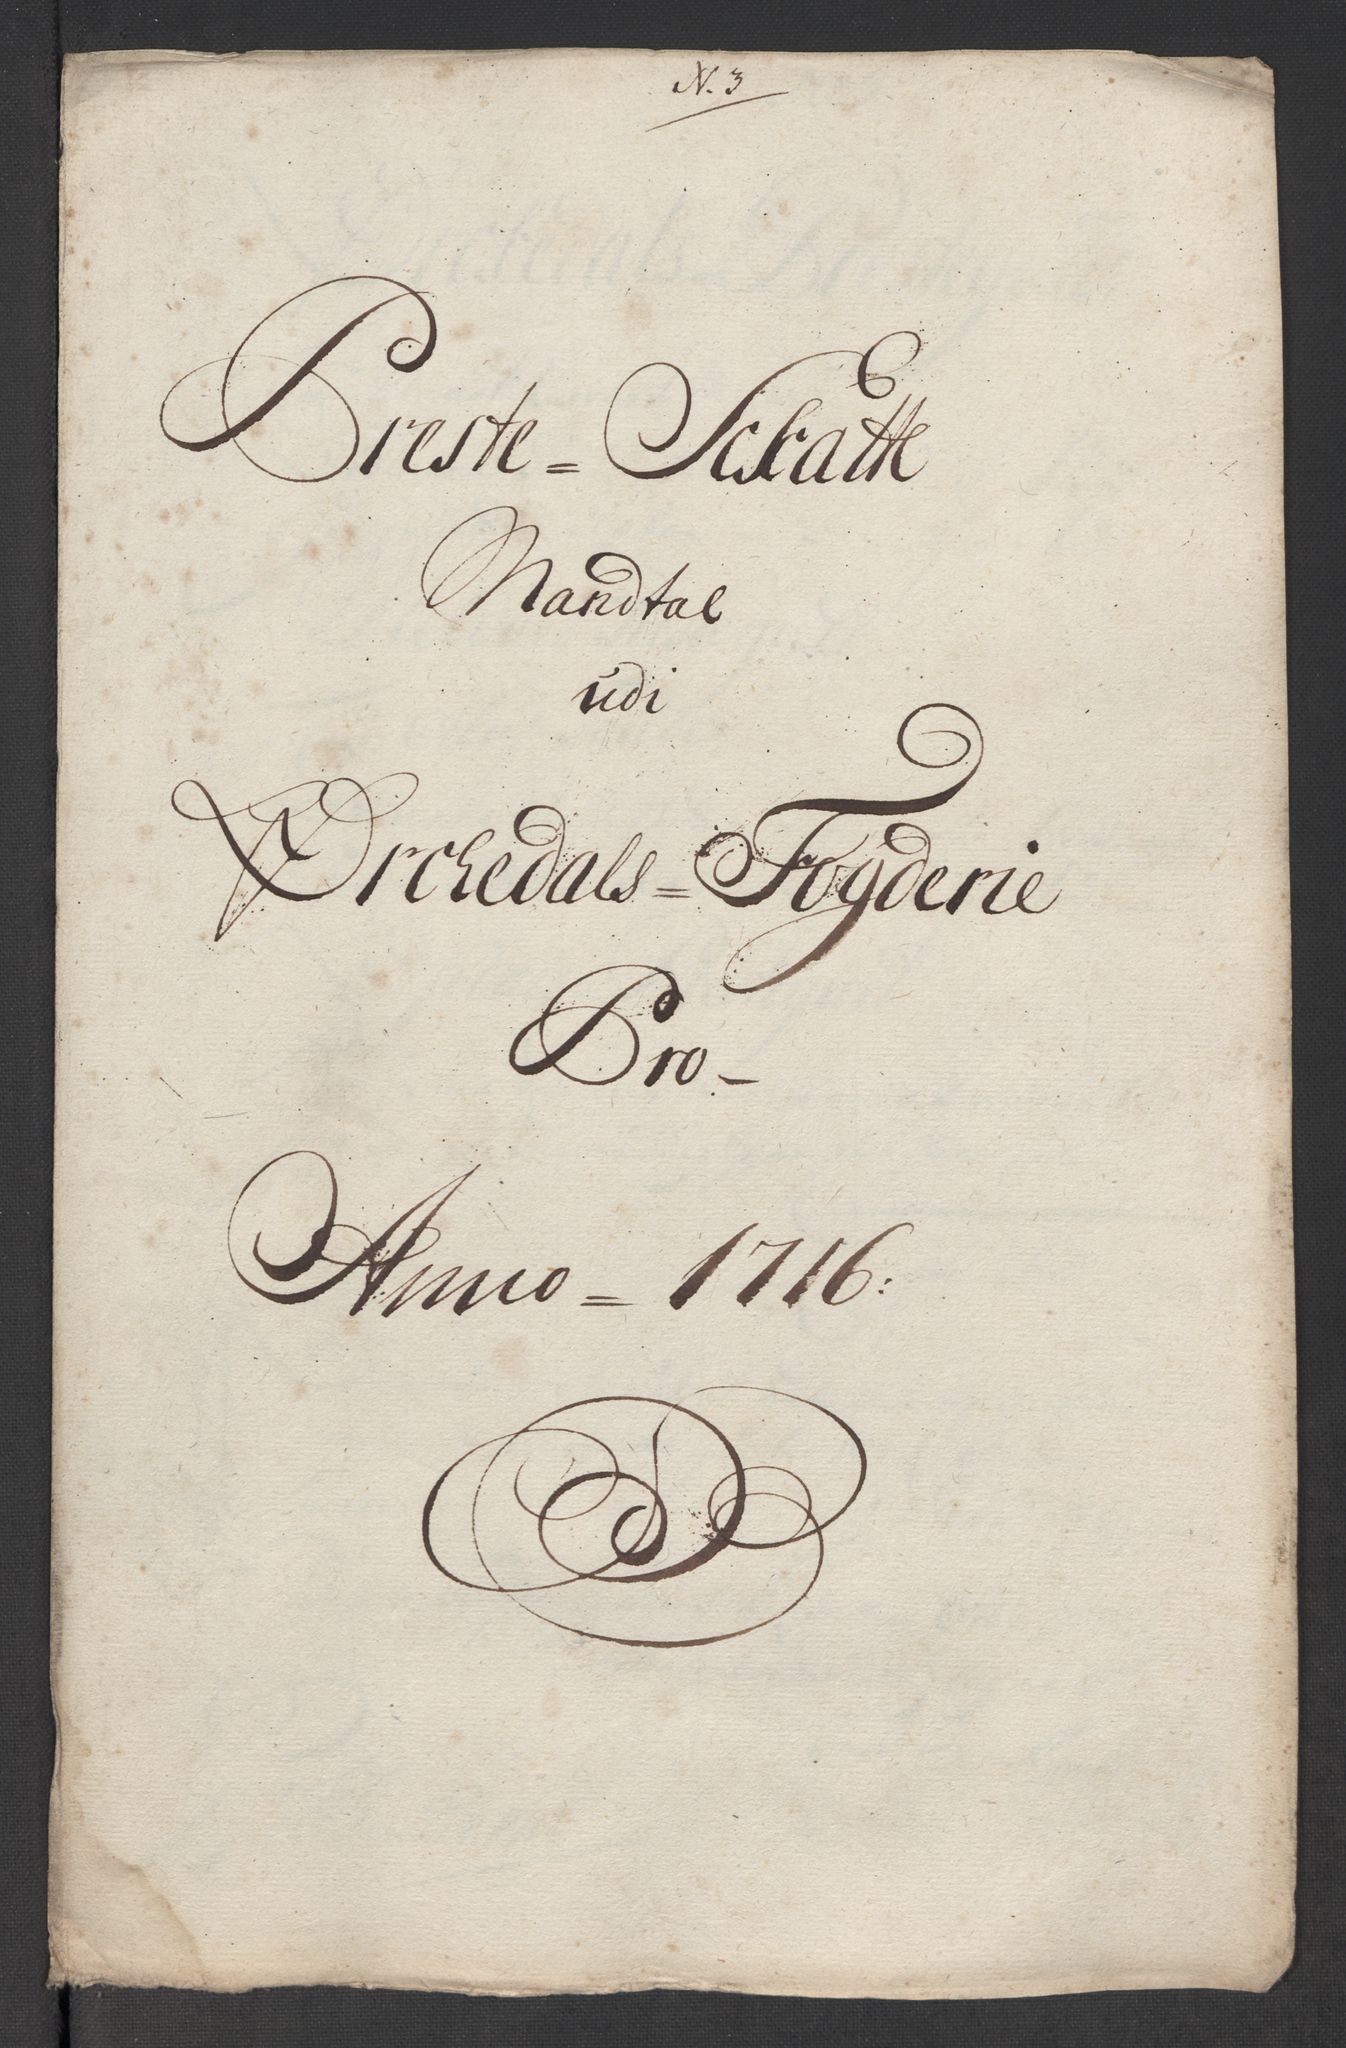 N. 3
Preste = Schatte
Mandtal
udi
Orchedals = Fogderie
Pro –
Anno = 1716: